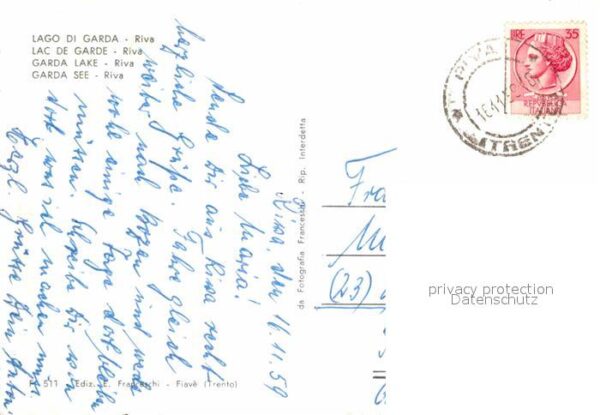 LAGO DI GARDA - Riva
LAC DE GARDE - Riva
GARDA LAKE - Riva
GARDA SEE - Riva
Riva den 16.11.59
Liebe Maria!
Sende dir aus Riva recht
herzliche Grüße. Fahre gleich
weiter nach Bozen und werde
wohl einige Tage dort bleiben
müssen. Schreibe dir von
dort was ich machen muß
Herzl. Grüsse Dein Anton
T. 511 - Ediz. E. Franceschi - Fiavè (Trento)
da Fotografia Franceschi - Rip. Interdetta
Fra
M
(23)
LIRE 35
REPUBBLICA
ITALIANA
RIVA
16.11.59
(TRENTO)
privacy protection
Datenschutz